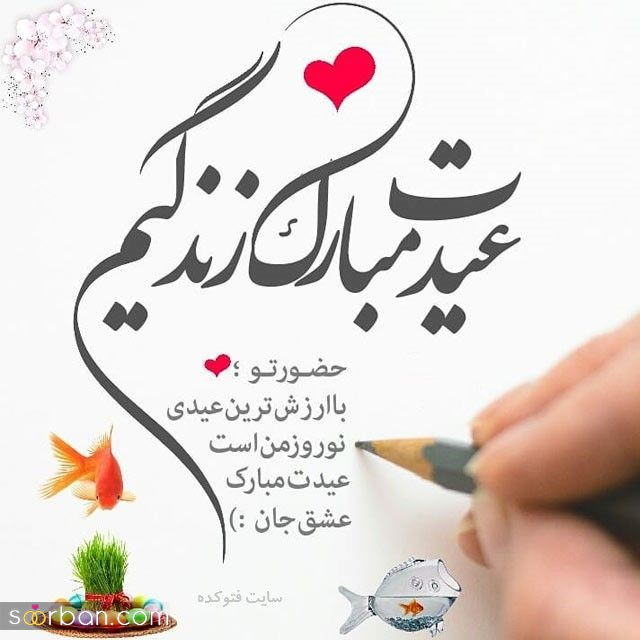 عیدت مبارک زندگیم
حضورتو ؛
باارزش‌ترین‌عیدی
نوروزمن‌است
عیدت‌مبارک
عشق‌جان :)
سایت فتوکده
soorban.com